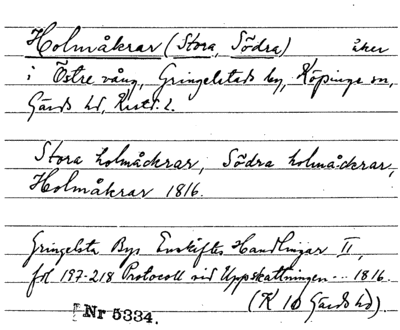 Holmåkrar (Stora, Södra) åker
i Östre vång, Gringelstads by, Köpinge sn,
Gärds hd, Krist. l.
Stora holmåckrar, Södra holmåckrar,
Holmåkrar 1816.
Gringelsta Bys Enskiftes Handlingar II,
fol 197-218 Protocoll vid Uppskattningen -- 1816.
(K 10 Gärds hd)
Nr 5334.